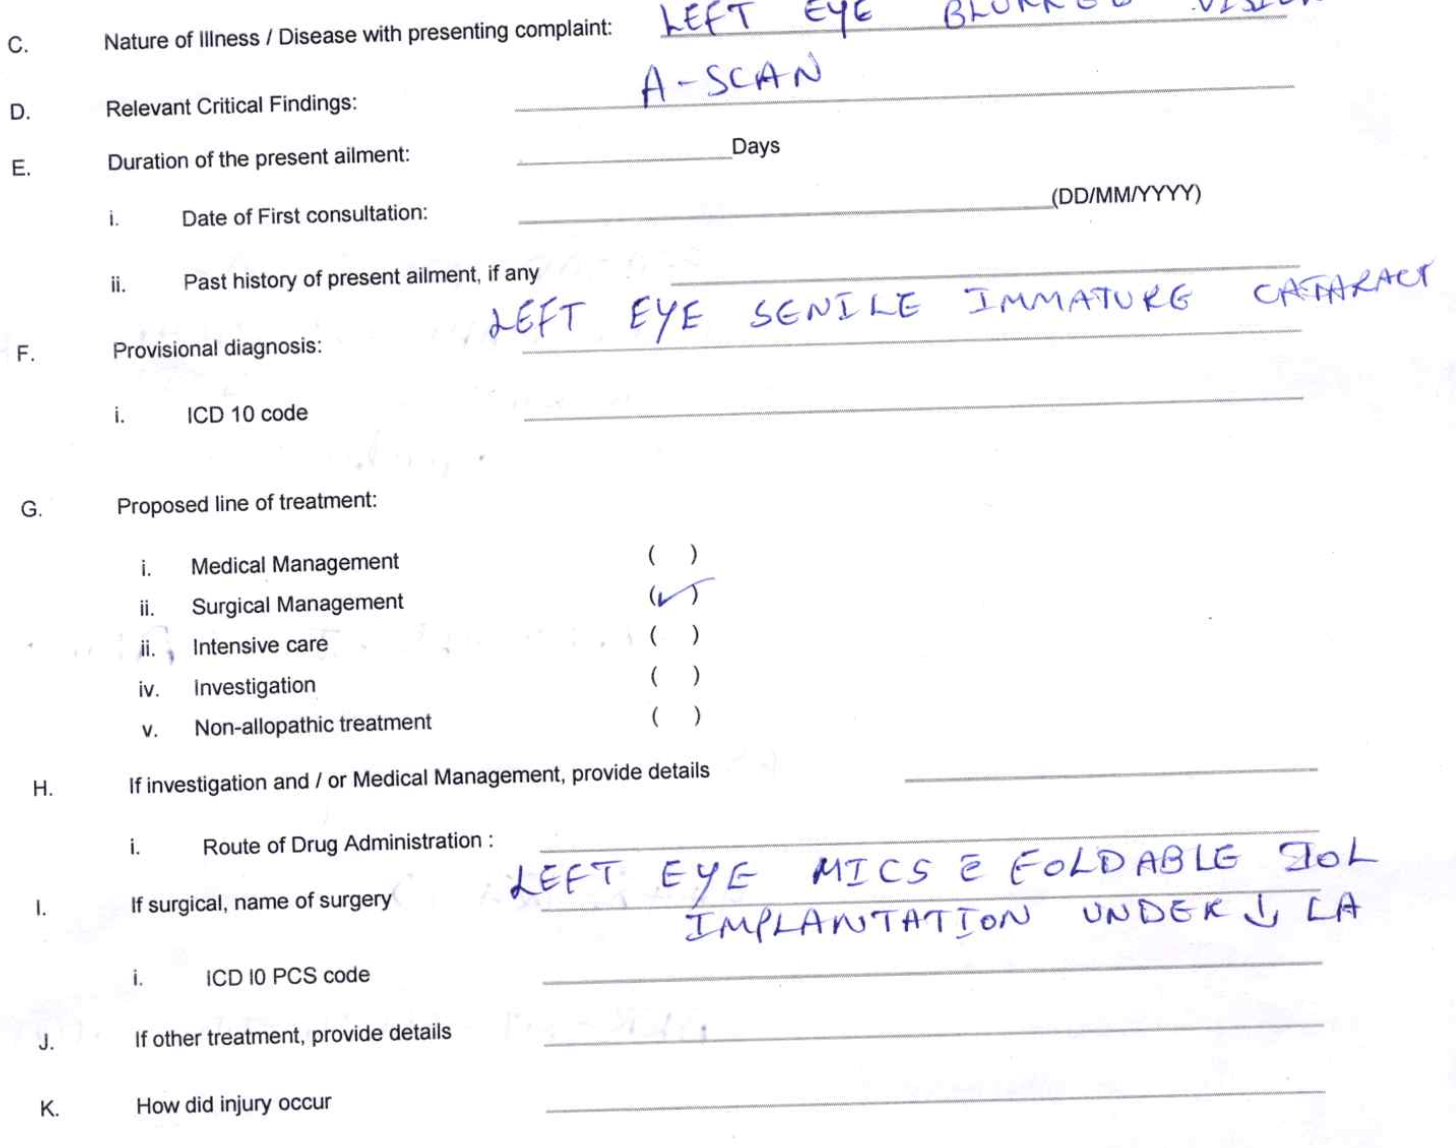 C. Nature of Illness / Disease with presenting complaint: LEFT EYE BLURRED VISION
D. Relevant Critical Findings: A-SCAN
E. Duration of the present ailment: Days
i. Date of First consultation: (DD/MM/YYYY)
ii. Past history of present ailment, if any
F. Provisional diagnosis: LEFT EYE SENILE IMMATURE CATARACT
i. ICD 10 code
G. Proposed line of treatment:
i. Medical Management ( )
ii. Surgical Management (✓)
ii. Intensive care ( )
iv. Investigation ( )
v. Non-allopathic treatment ( )
H. If investigation and / or Medical Management, provide details
i. Route of Drug Administration :
I. If surgical, name of surgery LEFT EYE MICS c̄ FOLDABLE IOL
IMPLANTATION UNDER ↓ LA
i. ICD I0 PCS code
J. If other treatment, provide details
K. How did injury occur